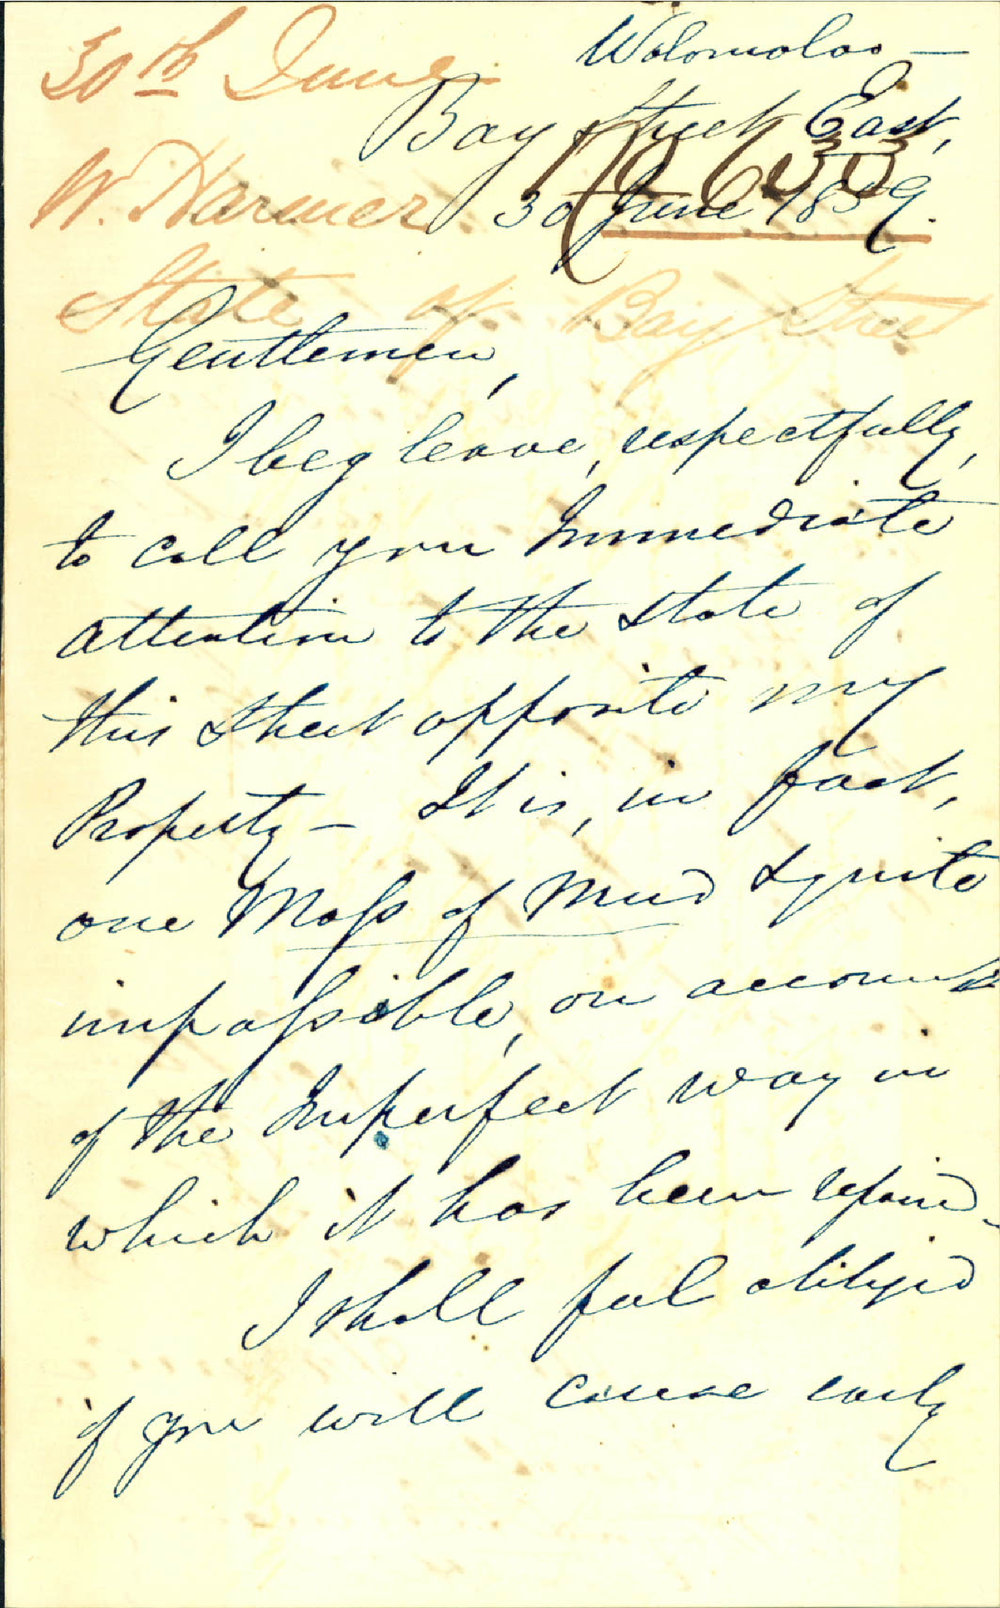 30th June
Wolomoloo —
Bay Street East,
W. Harmer
30 June 1859.
State of Bay Street
Gentlemen,
I beg leave, respectfully,
to call your Immediate
attention to the state of
this street opposite my
Property — It is, in fact,
one Mass of Mud & quite
impassible, on account
of the Imperfect way in
which it has been repaired
I shall feel obliged
if you will cause early